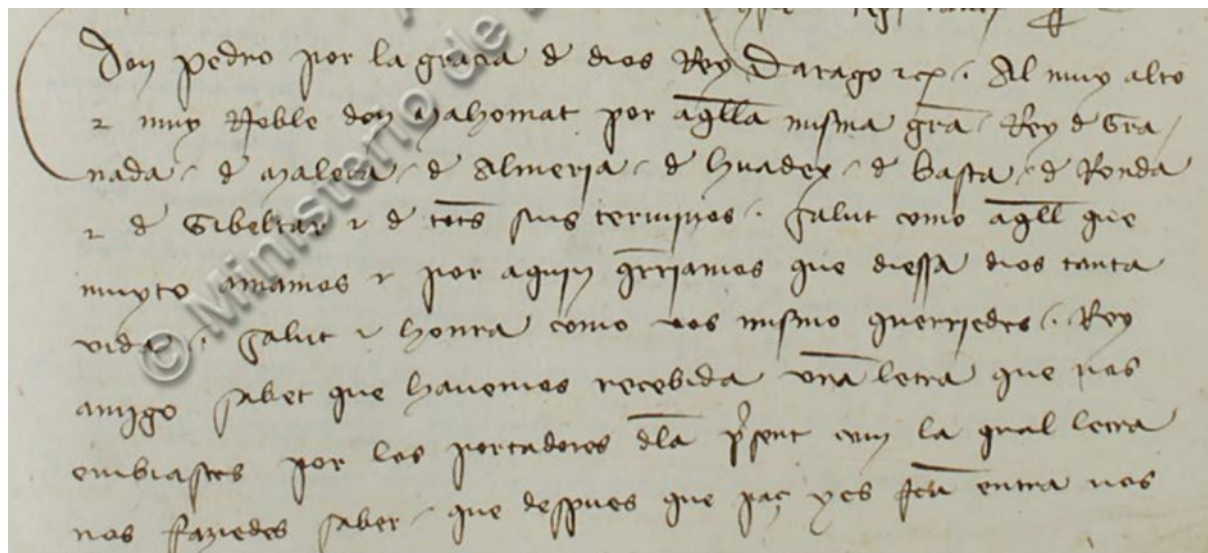 Don pedro por la gracia de dios Rey Darago etc. Al muy alto
e muy Noble don Mahomat por aqlla misma gra Rey de Gra
nada / de Maleca / de Almeria / de huadex / de basta / de Ronda
e de Gibeltar e de tots sus terminos. Salut como aqll que
muyto amamos e por aquiy qrriamos que diessa dios tanta
vida. Salut e honra como vos mismo querriedes. Rey
amigo sabet que havemos recebida vra letra que nos
embiastes por los portadores dla psent com la qual letra
nos faziedes saber / que despues que paç yes fta entra nos
© Ministerio de